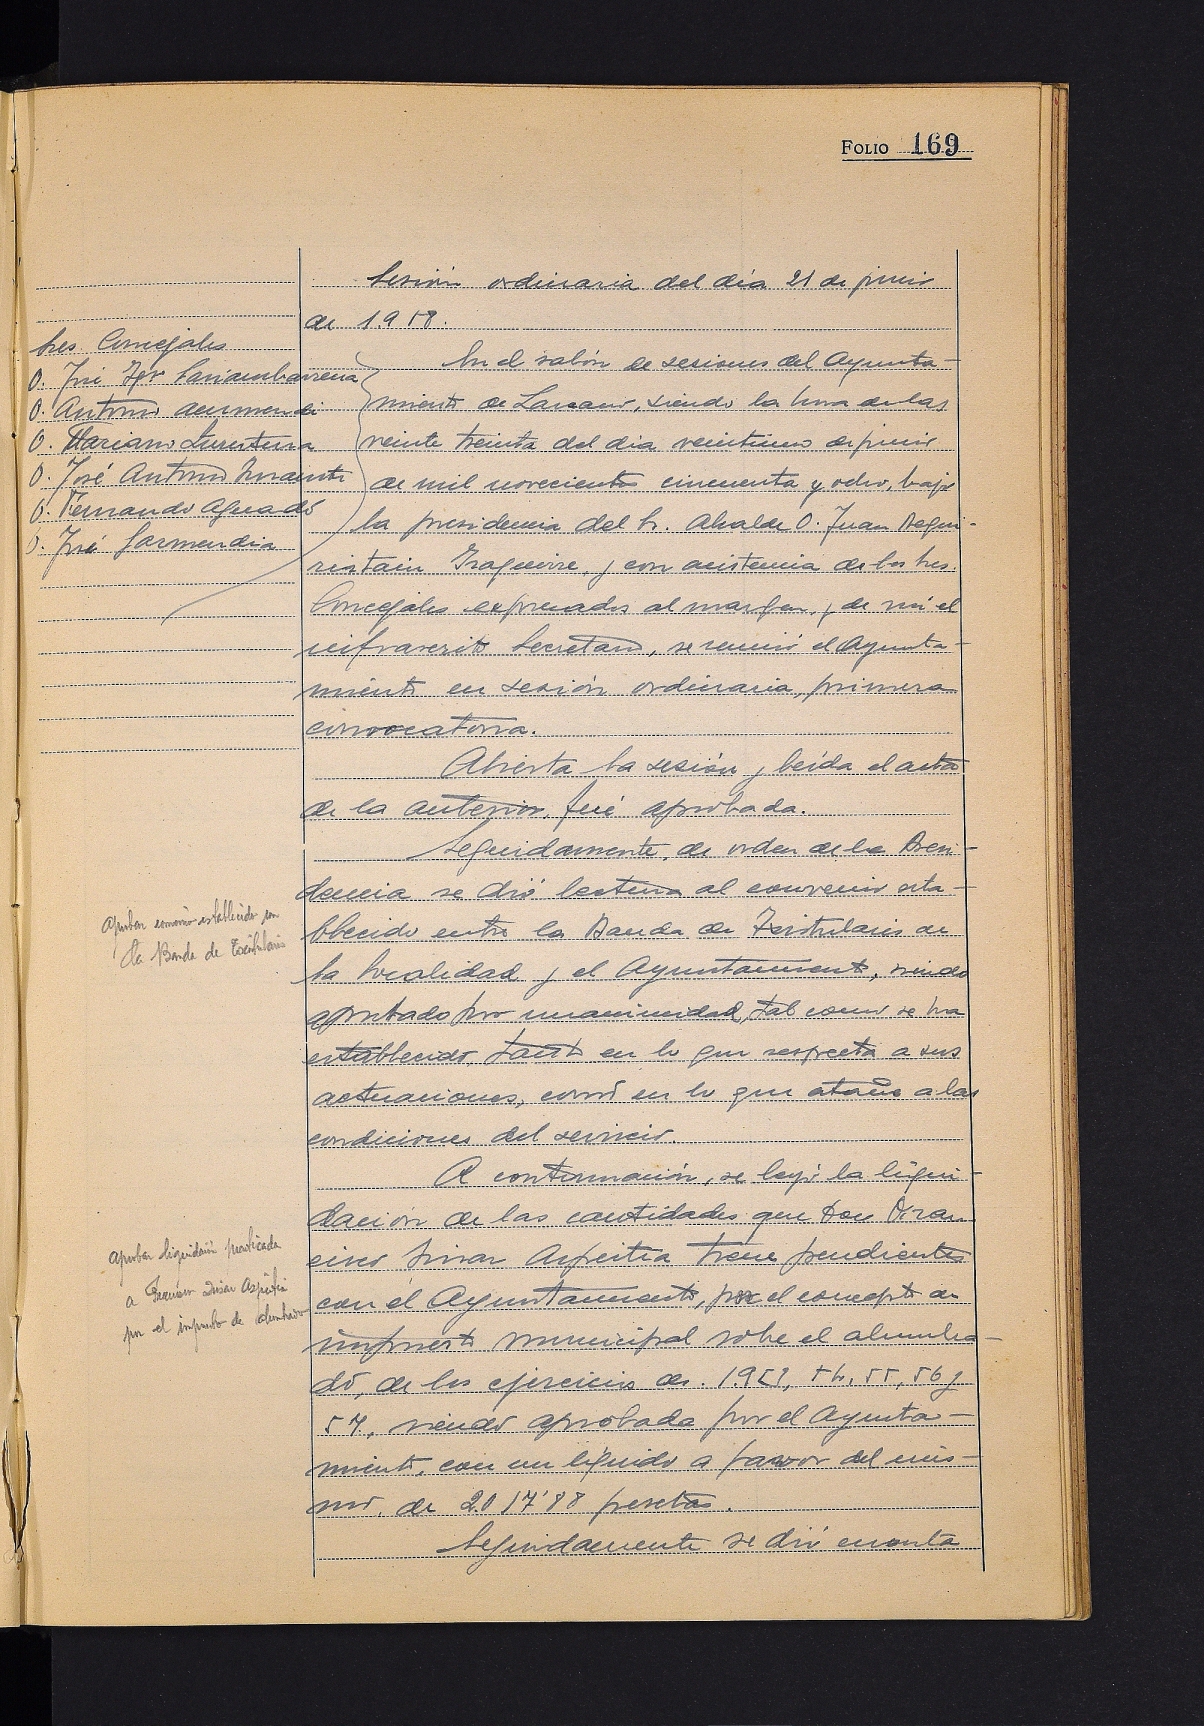 FOLIO 169
Sesión ordinaria del día 21 de junio
de 1.958.
Sres. Concejales
D. José Igº Sansambarrena
D. Antonio Aurmendi
D. Mariano Surutusa
D. José Antonio
D. Fernando Aguado
D. José Garmendia
En el salón de sesiones del Ayunta-
miento de Lazcano, siendo la hora de las
veinte treinta del dia veintiuno de junio
de mil novecientos cincuenta y ocho, bajo
la presidencia del Sr. Alcalde D. Juan Begui-
ristain Izaguirre, y con asistencia de los Sres.
Concejales expresados al margen, y de mí el
infrascrito Secretario, se reunió el Ayunta-
miento en sesión ordinaria, primera
convocatoria.
Abierta la sesión y leída el acta
de la anterior, fué aprobada.
Seguidamente, de orden de la Presi-
dencia se dió lectura al convenio esta-
blecido entre la Banda de Txistularis de
la localidad y el Ayuntamiento, siendo
aprobado por unanimidad, tal como se ha
establecido, tanto en lo que respecta a sus
actuaciones, como en lo que atañe a las
condiciones del servicio.
Aprobar convenio establecido con
la Banda de Txistularis
A continuación, se leyó la liqui-
dación de las cantidades que Don Fran-
cisco Azpeitia tiene pendientes
con el Ayuntamiento, por el concepto de
impuesto municipal sobre el alumbra-
do, de los ejercicios de 1.953, 54, 55, 56 y
57, siendo aprobada por el Ayunta-
miento, con un líquido a favor del mis-
mo, de 2.017'88 pesetas.
Aprobar liquidación practicada
a Francisco Azpeitia
por el impuesto de alumbrado
Seguidamente se dió cuenta